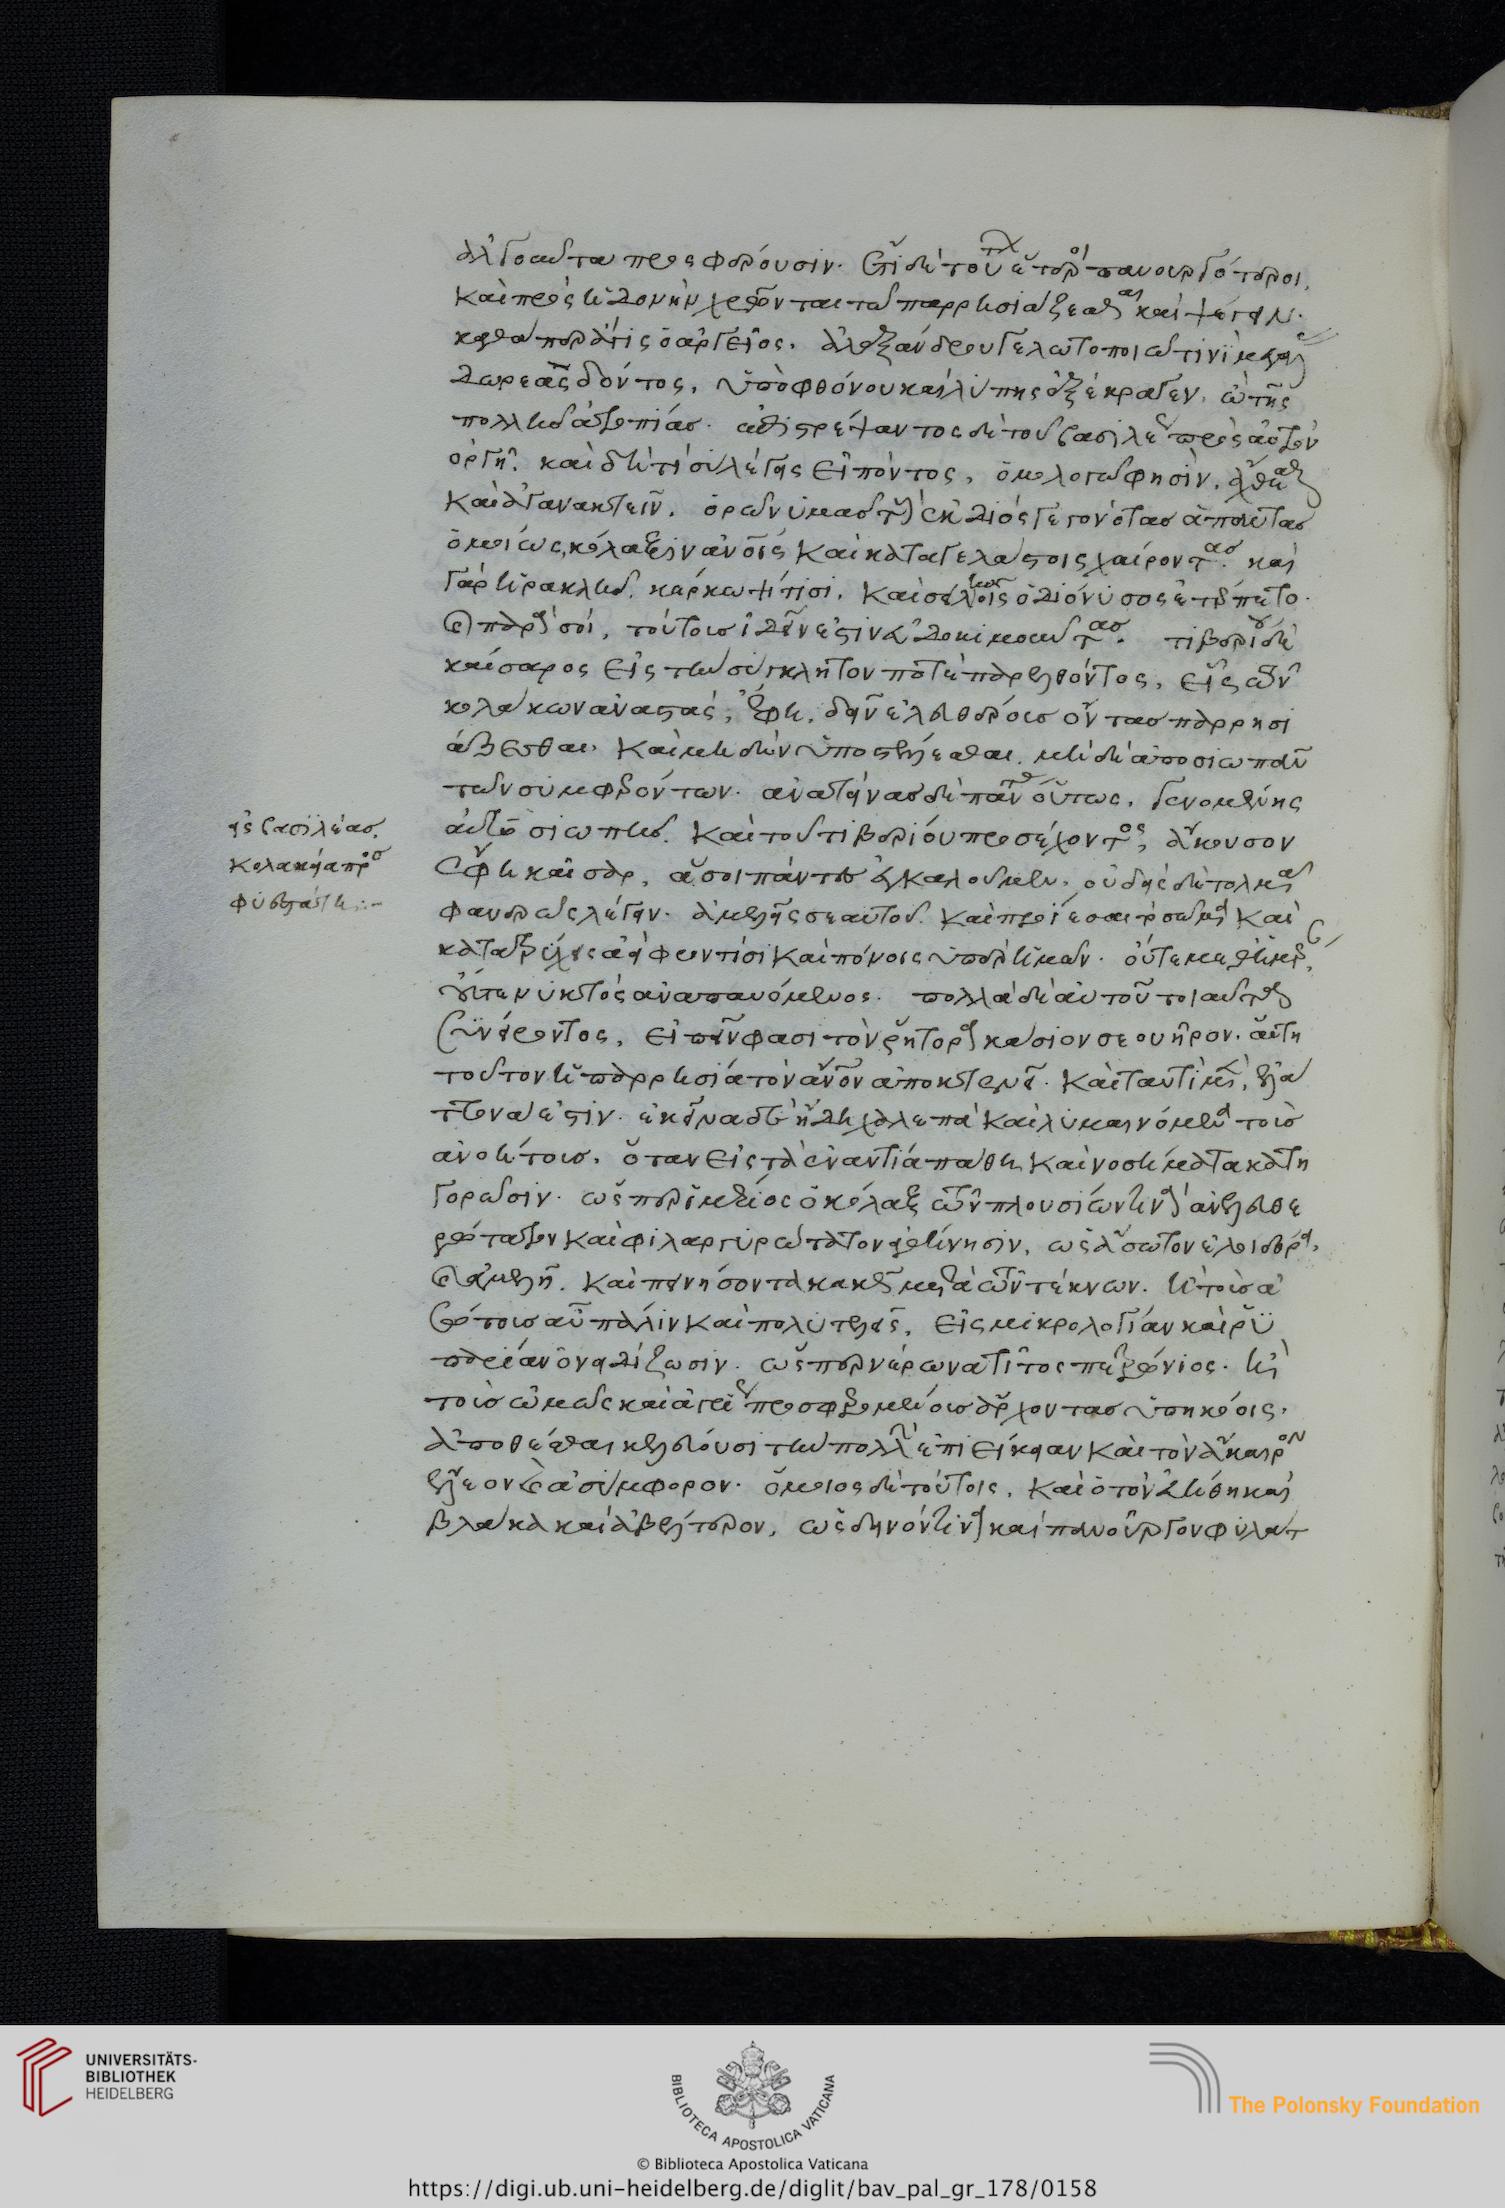 ἄλγος αὐτὰ προσφέρουσιν. ἔτι δὲ τούτων ἕτεροι πανουργότεροι,
καὶ πρὸς ἡδονὴν χρῶνται τῷ παρρησιάζεσθαι καὶ ψέγειν.
καθάπερ ἄγις ὁ ἀργεῖος. ἀλεξάνδρου γελωτοποιῷ τινὶ μεγάλας
δωρεὰς διδόντος, ὑπὸ φθόνου καὶ λύπης ἐξέκραγεν. ὢ τῆς
πολλῆς ἀτοπίας. ἐπιστρέψαντος δὲ τοῦ βασιλέως πρὸς αὐτὸν
ὀργῇ. καὶ δὴ τί σὺ λέγεις εἰπόντος, ὁμολογῶ φησὶν, ἄχθεσθαι
καὶ ἀγανακτεῖν. ὁρῶν ὑμᾶς τοὺς ἐκ διὸς γεγονότας ἅπαντας
ὁμοίως κόλαξιν ἀνθρώποις καὶ καταγελάστοις χαίροντας. καὶ
γὰρ ἡρακλῆς, κέρκωψί τισι, καὶ σειληνοῖς ὁ διόνυσος ἐτέρπετο.
καὶ παρὰ σοί, τούτους ἰδεῖν ἐστὶν εὐδοκιμοῦντας. τιβερίου δὲ
καίσαρος εἰς τὴν σύγκλητον ποτὲ παρελθόντος, εἷς τῶν
κολάκων ἀναστάς, ἔφη, δεῖν ἐλευθέρους ὄντας παρρησι
άζεσθαι, καὶ μηδὲν ὑποστέλλεσθαι, μηδὲ ἀποσιωπᾶν
τῶν συμφερόντων. ἀνατείνας δὲ πάντας οὕτως, γενομένης
αὐτῷ σιωπῆς. καὶ τοῦ τιβερίου προσέχοντος, ἄκουσον
ἔφη καῖσαρ, ἅ σοι πάντες ἐγκαλοῦμεν, οὐδεὶς δὲ τολμᾷ
φανερῶς λέγειν. ἀμελεῖς σεαυτοῦ. καὶ προΐεσαι τὸ σῶμα καὶ
κατατρύχεις ἀεὶ φροντίσι καὶ πόνοις ὑπὲρ ἡμῶν. οὔτε μεθ' ἡμέραν,
οὔτε νυκτὸς ἀναπαυόμενος. πολλὰ δὲ αὐτοῦ τοιαῦτα
συνείροντος, εἰπεῖν φασι τὸν ῥήτορα κάσιον σεουῆρον. αὕτη
τοῦτον ἡ παρρησία τὸν ἄνθρωπον ἀποκτενεῖ. καὶ ταυτὶ μὲν, ἐλά
ττονα ἐστίν. ἐκεῖνα δὲ ἤδη χαλεπὰ καὶ λυμαινόμενα τοὺς
ἀνοήτους, ὅταν εἰς τὰ ἐναντία πάθη καὶ νοσήματα κατη
γορῶσιν. ὥσπερ ἱμέριος ὁ κόλαξ τῶν πλουσίων τινὰ ἀνελευθε
ρώτατον καὶ φιλαργυρώτατον ἀθήνησιν, ὡς ἄσωτον ἐλοιδόρει,
καὶ ἀμελῆ. καὶ πεινήσοντα κακῶς μετὰ τῶν τέκνων. ἢ τοὺς ἀ
σώτους αὖ πάλιν καὶ πολυτελεῖς, εἰς μικρολογίαν καὶ ῥυ
παρίαν ὀνειδίζωσιν. ὥσπερ νέρωνα τίτος πετρώνιος. ἢ
τοὺς ὠμῶς καὶ ἀγρίως προσφερομένους ἄρχοντας ὑπηκόοις,
ἀποθέσθαι κελεύουσι τὴν πολλὴν ἐπιείκειαν καὶ τὸν ἄκαιρον
ἔλεον καὶ ἀσύμφορον. ὅμοιος δὲ τούτοις, καὶ ὁ τὸν εὐήθη καὶ
βλάκα καὶ ἀβέλτερον, ὡς δεινόν τινα καὶ πανοῦργον φυλατ
εἰς βασιλέας
κολακεία προσ
φυεστάτη :~
UNIVERSITÄTS-
BIBLIOTHEK
HEIDELBERG
BIBLIOTECA APOSTOLICA VATICANA
© Biblioteca Apostolica Vaticana
The Polonsky Foundation
https://digi.ub.uni-heidelberg.de/diglit/bav_pal_gr_178/0158